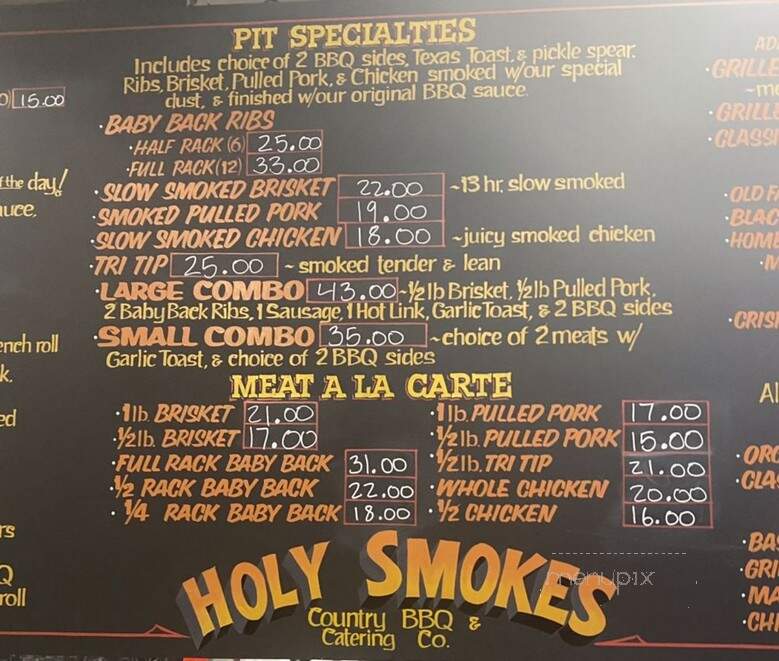 PIT SPECIALTIES
Includes choice of 2 BBQ sides, Texas Toast, & pickle spear.
Ribs, Brisket, Pulled Pork, & Chicken smoked w/our special
dust, & finished w/our original BBQ sauce.
• BABY BACK RIBS
• HALF RACK (6) 25.00
• FULL RACK (12) 33.00
• SLOW SMOKED BRISKET 22.00 ~13 hr. slow smoked
• SMOKED PULLED PORK 19.00
• SLOW SMOKED CHICKEN 18.00 ~juicy smoked chicken
• TRI TIP 25.00 ~ smoked tender & lean
• LARGE COMBO 43.00 ~½ lb Brisket, ½ lb Pulled Pork,
2 Baby Back Ribs, 1 Sausage, 1 Hot Link, Garlic Toast, & 2 BBQ sides
• SMALL COMBO 35.00 ~choice of 2 meats w/
Garlic Toast, & choice of 2 BBQ sides
MEAT A LA CARTE
• 1 lb. BRISKET 21.00
• ½ lb. BRISKET 17.00
• FULL RACK BABY BACK 31.00
• ½ RACK BABY BACK 22.00
• ¼ RACK BABY BACK 18.00
• 1 lb. PULLED PORK 17.00
• ½ lb. PULLED PORK 15.00
• ½ lb. TRI TIP 21.00
• WHOLE CHICKEN 20.00
• ½ CHICKEN 16.00
HOLY SMOKES
Country BBQ &
Catering Co.
15.00
of the day!
auce.
ench roll
menupix